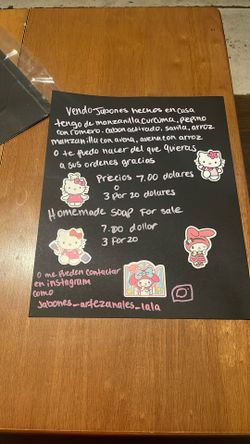 Vendo Jabones hechos en casa
tengo de manzanilla, curcuma, pepino
con romero, carbon activado, savila, arroz
manzanilla con avena, avena con arroz
o te puedo hacer del que quieras
a sus ordenes gracias
Precios 7.00 dolares
o
3 por 20 dolares
Homemade soap for sale
7.00 dollar
3 for 20
o me pueden contactar
en instagram
como
Jabones_artezanales_lala